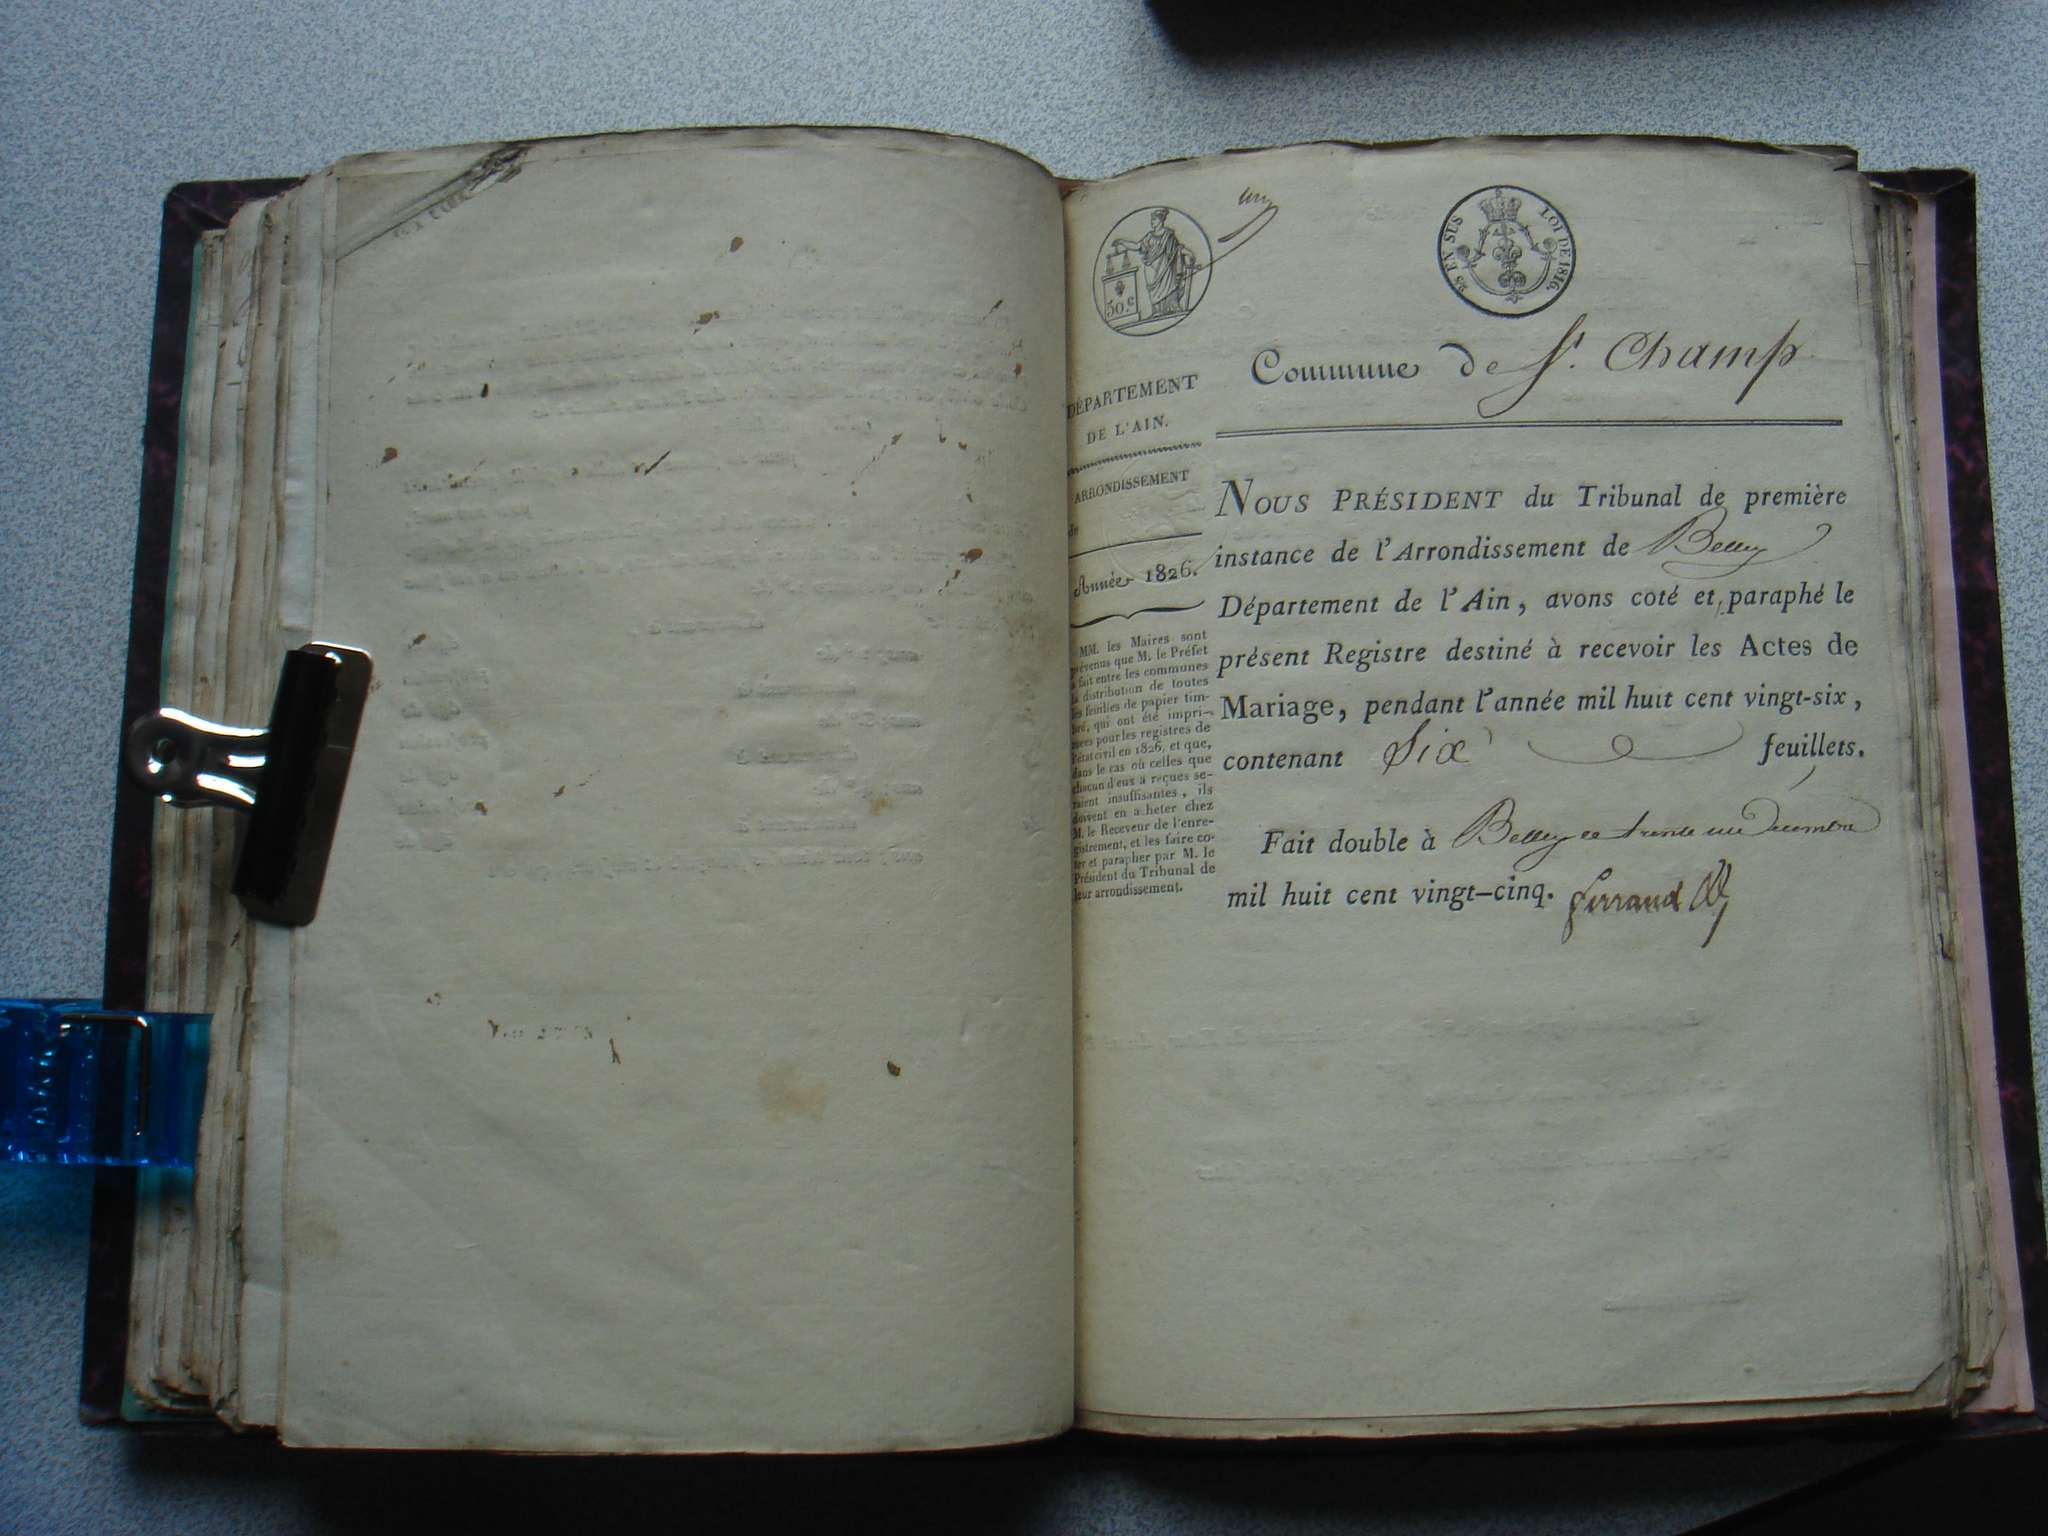 un
50.c
25 EN SUS
LOI DE 1816.
Commune de St. Champ
DÉPARTEMENT
DE L'AIN.
ARRONDISSEMENT
de
Année 1826.
MM. les Maires sont
prévenus que M. le Préfet
a fait entre les communes
la distribution de toutes
les feuilles de papier tim-
bré, qui ont été impri-
mées pour les registres de
l'état civil en 1826, et que,
dans le cas où celles que
chacun d'eux a reçues se-
raient insuffisantes, ils
doivent en acheter chez
M. le Receveur de l'enre-
gistrement, et les faire co-
ter et parapher par M. le
Président du Tribunal de
leur arrondissement.
NOUS PRÉSIDENT du Tribunal de première
instance de l'Arrondissement de Belley
Département de l'Ain, avons coté et paraphé le
présent Registre destiné à recevoir les Actes de
Mariage, pendant l'année mil huit cent vingt-six,
contenant Six feuillets.
Fait double à Belley le trente un Décembre
mil huit cent vingt-cinq. Ferrand